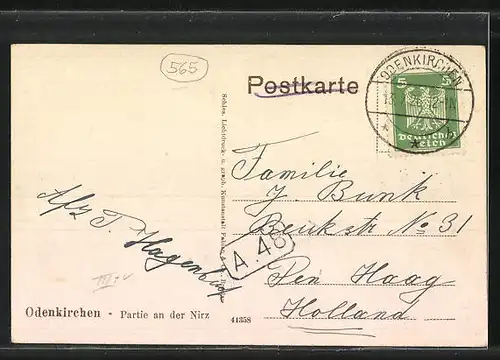 565
Postkarte
ODENKIRCHEN
5 5
Deutsches
Reich
Familie
J. Bunk
Beukstr No 31
A 48
Den Haag
Holland
Afz. T. Hagenbuf
Schles. Lichtdruck- u. graph. Kunstanstalt
Odenkirchen - Partie an der Nirz
41358